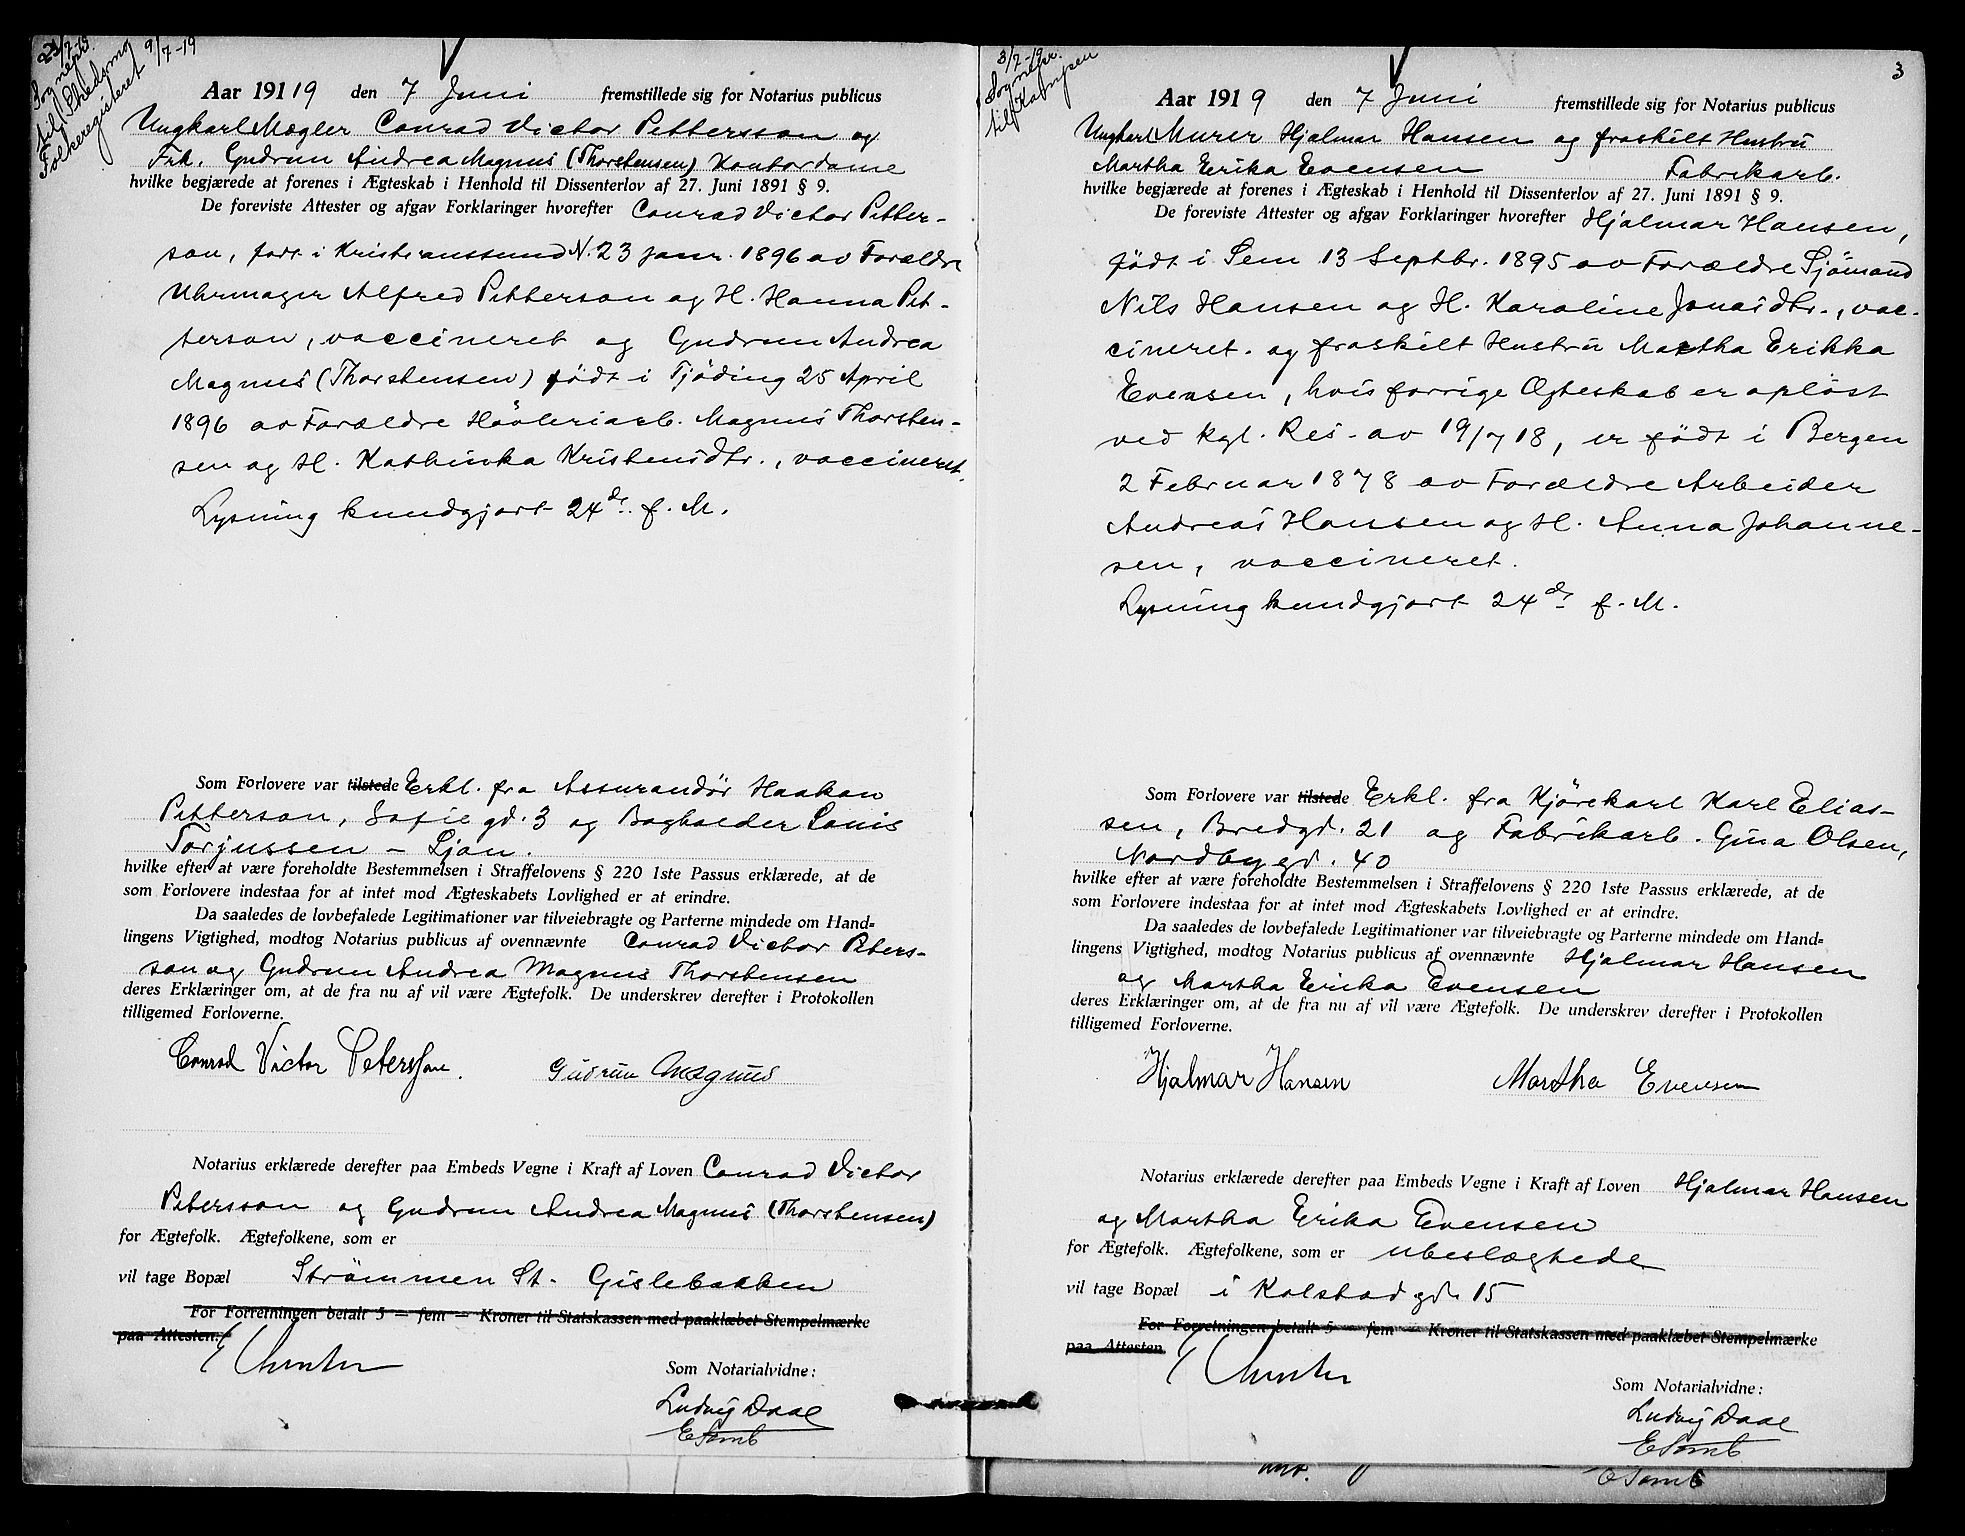 21/7-19
Sognepr.
til Skedsmo
Folkeregisteret 9/7-19
Aar 19119 den 7 Juni fremstillede sig for Notarius publicus
Ungkarl Mægler Conrad Victor Pettersson og
Frk. Gudrun Andrea Magnus (Thorstensen) Kontordame
hvilke begjærede at forenes i Ægteskab i Henhold til Dissenterlov af 27. Juni 1891 § 9.
De foreviste Attester og afgav Forklaringer hvorefter Conrad Victor Petter-
son, født i Kristianssund N. 23 janr. 1896 av Forældre
Uhrmager Alfred Petterson og H. Hanna Pet-
terson, vaccineret og Gudrun Andrea
Magnus (Thorstensen) født i Fjöding 25 April
1896 av Forældre Hövleriarb. Magnus Thorsten-
sen og H. Kathinka Kristensdtr., vaccineret.
Lysning kundgjort 24ds. f. M.
Som Forlovere var tilstede Erkl. fra Assurandör Haakon
Petterson, Sofiegd. 3 og Bogholder Louis
Torjussen – Ljan.
hvilke efter at være foreholdte Bestemmelsen i Straffelovens § 220 1ste Passus erklærede, at de
som Forlovere indestaa for at intet mod Ægteskabets Lovlighed er at erindre.
Da saaledes de lovbefalede Legitimationer var tilveiebragte og Parterne mindede om Hand=
lingens Vigtighed, modtog Notarius publicus af ovennævnte Conrad Victor Peters-
son og Gudrun Andrea Magnus Thorstensen
deres Erklæringer om, at de fra nu af vil være Ægtefolk. De underskrev derefter i Protokollen
tilligemed Forloverne.
Conrad Victor Petersson. Gudrun Magnus
Notarius erklærede derefter paa Embeds Vegne i Kraft af Loven Conrad Victor
Petersson og Gudrun Andrea Magnus (Thorstensen)
for Ægtefolk. Ægtefolkene, som er
vil tage Bopæl Strömmen St. Gislebakken
For Forretningen betalt 5 — fem — Kroner til Statskassen med paaklæbet Stempelmærke
paa Attesten.
Som Notarialvidne:
Ludvig Daae
E Tomb
3/7-19.
Sognepr.
til Kampen
3
Aar 1919 den 7 Juni fremstillede sig for Notarius publicus
Ungkarl Murer Hjalmar Hansen og fraskilt Hustru
Martha Erika Evensen Fabrikarb.
hvilke begjærede at forenes i Ægteskab i Henhold til Dissenterlov af 27. Juni 1891 § 9.
De foreviste Attester og afgav Forklaringer hvorefter Hjalmar Hansen,
født i Sem 13 Septbr. 1895 av Forældre Sjömand
Nils Hansen og H. Karoline Jonasdtr., vac-
cineret. og fraskilt Hustru Martha Erikka
Evensen, hvis forrige Ægteskab er opløst
ved kgl. Res. av 19/7 18, er født i Bergen
2 Februar 1878 av Forældre Arbeider
Andreas Hansen og H. Anna Johanne-
sen, vaccineret.
Lysning kundgjort 24ds f. M.
Som Forlovere var tilstede Erkl. fra Kjörekarl Karl Elias-
sen, Bredgd. 21 og Fabrikarb. Gina Olsen,
Nordbygd. 40
hvilke efter at være foreholdte Bestemmelsen i Straffelovens § 220 1ste Passus erklærede, at de
som Forlovere indestaa for at intet mod Ægteskabets Lovlighed er at erindre.
Da saaledes de lovbefalede Legitimationer var tilveiebragte og Parterne mindede om Hand=
lingens Vigtighed, modtog Notarius publicus af ovennævnte Hjalmar Hansen
og Martha Erika Evensen
deres Erklæringer om, at de fra nu af vil være Ægtefolk. De underskrev derefter i Protokollen
tilligemed Forloverne.
Hjalmar Hansen Martha Evensen
Notarius erklærede derefter paa Embeds Vegne i Kraft af Loven Hjalmar Hansen
og Martha Erika Evensen
for Ægtefolk. Ægtefolkene, som er ubeslægtede
vil tage Bopæl i Kolstadgd. 15
For Forretningen betalt 5 — fem — Kroner til Statskassen med paaklæbet Stempelmærke
paa Attesten
Som Notarialvidne:
Ludvig Daae
E Tomb
E Tomb